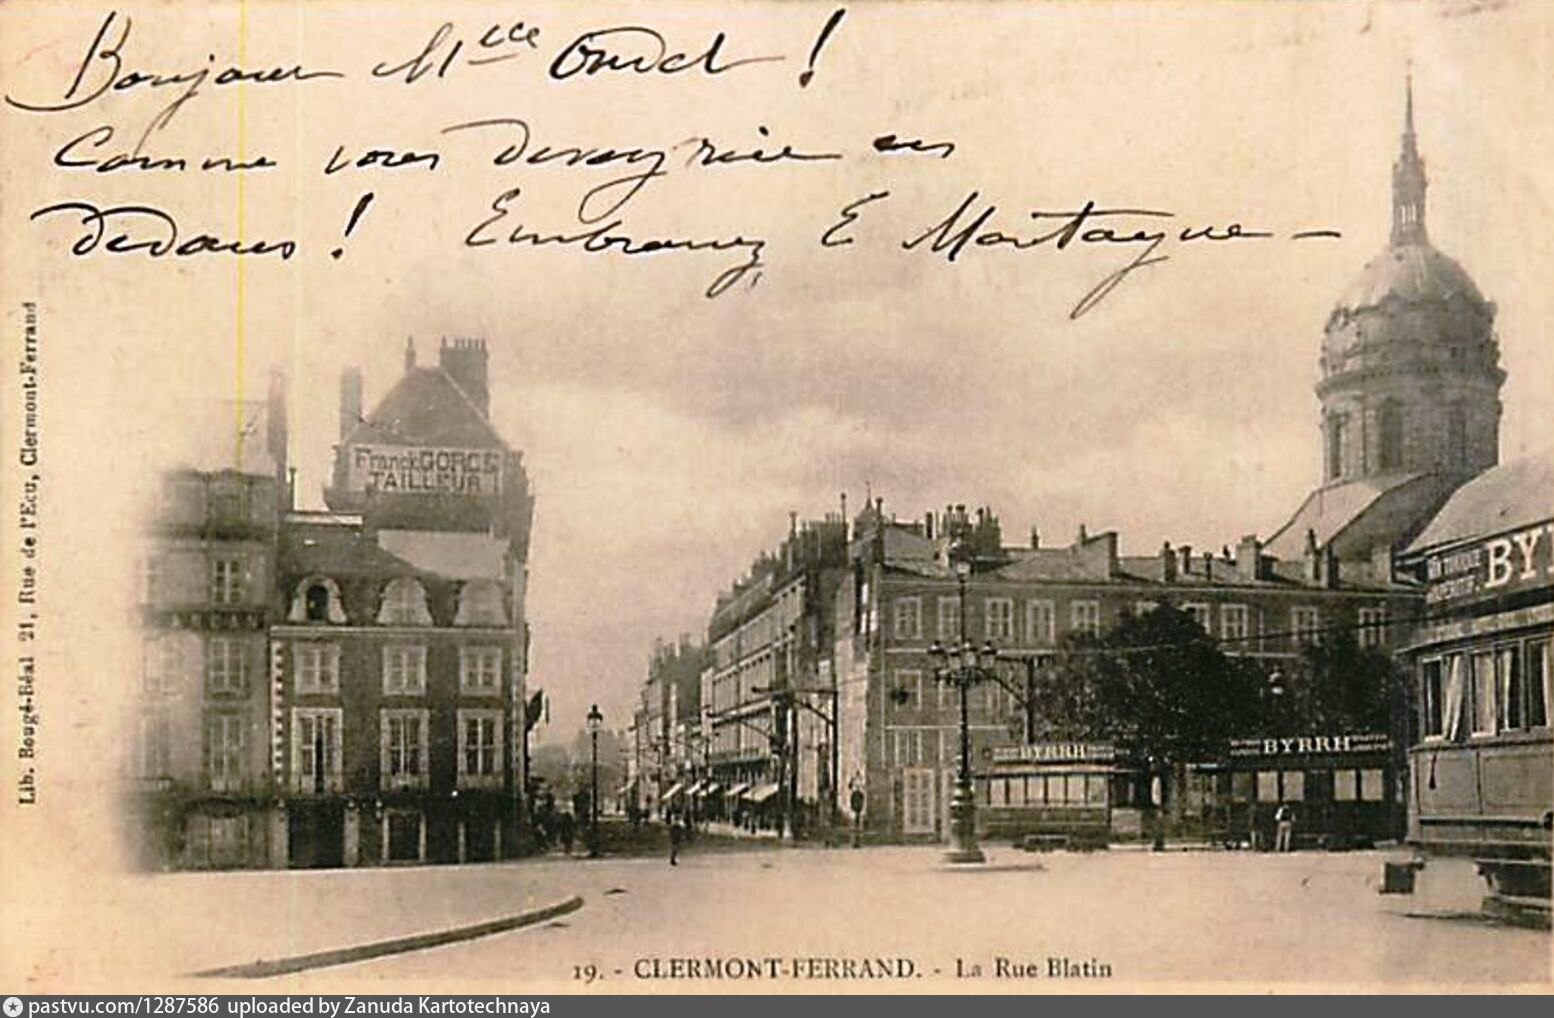 Bonjour Mlle !
Comme vous en
dedans ! E Montagne -
Lib. Rougé-Béal 21, Rue de l'Ecu, Clermont-Ferrand
Franck GORCE
TAILLEUR
BYRRH
BYRRH
BY
19. - CLERMONT-FERRAND. - La Rue Blatin
pastvu.com/1287586 uploaded by Zanuda Kartotechnaya